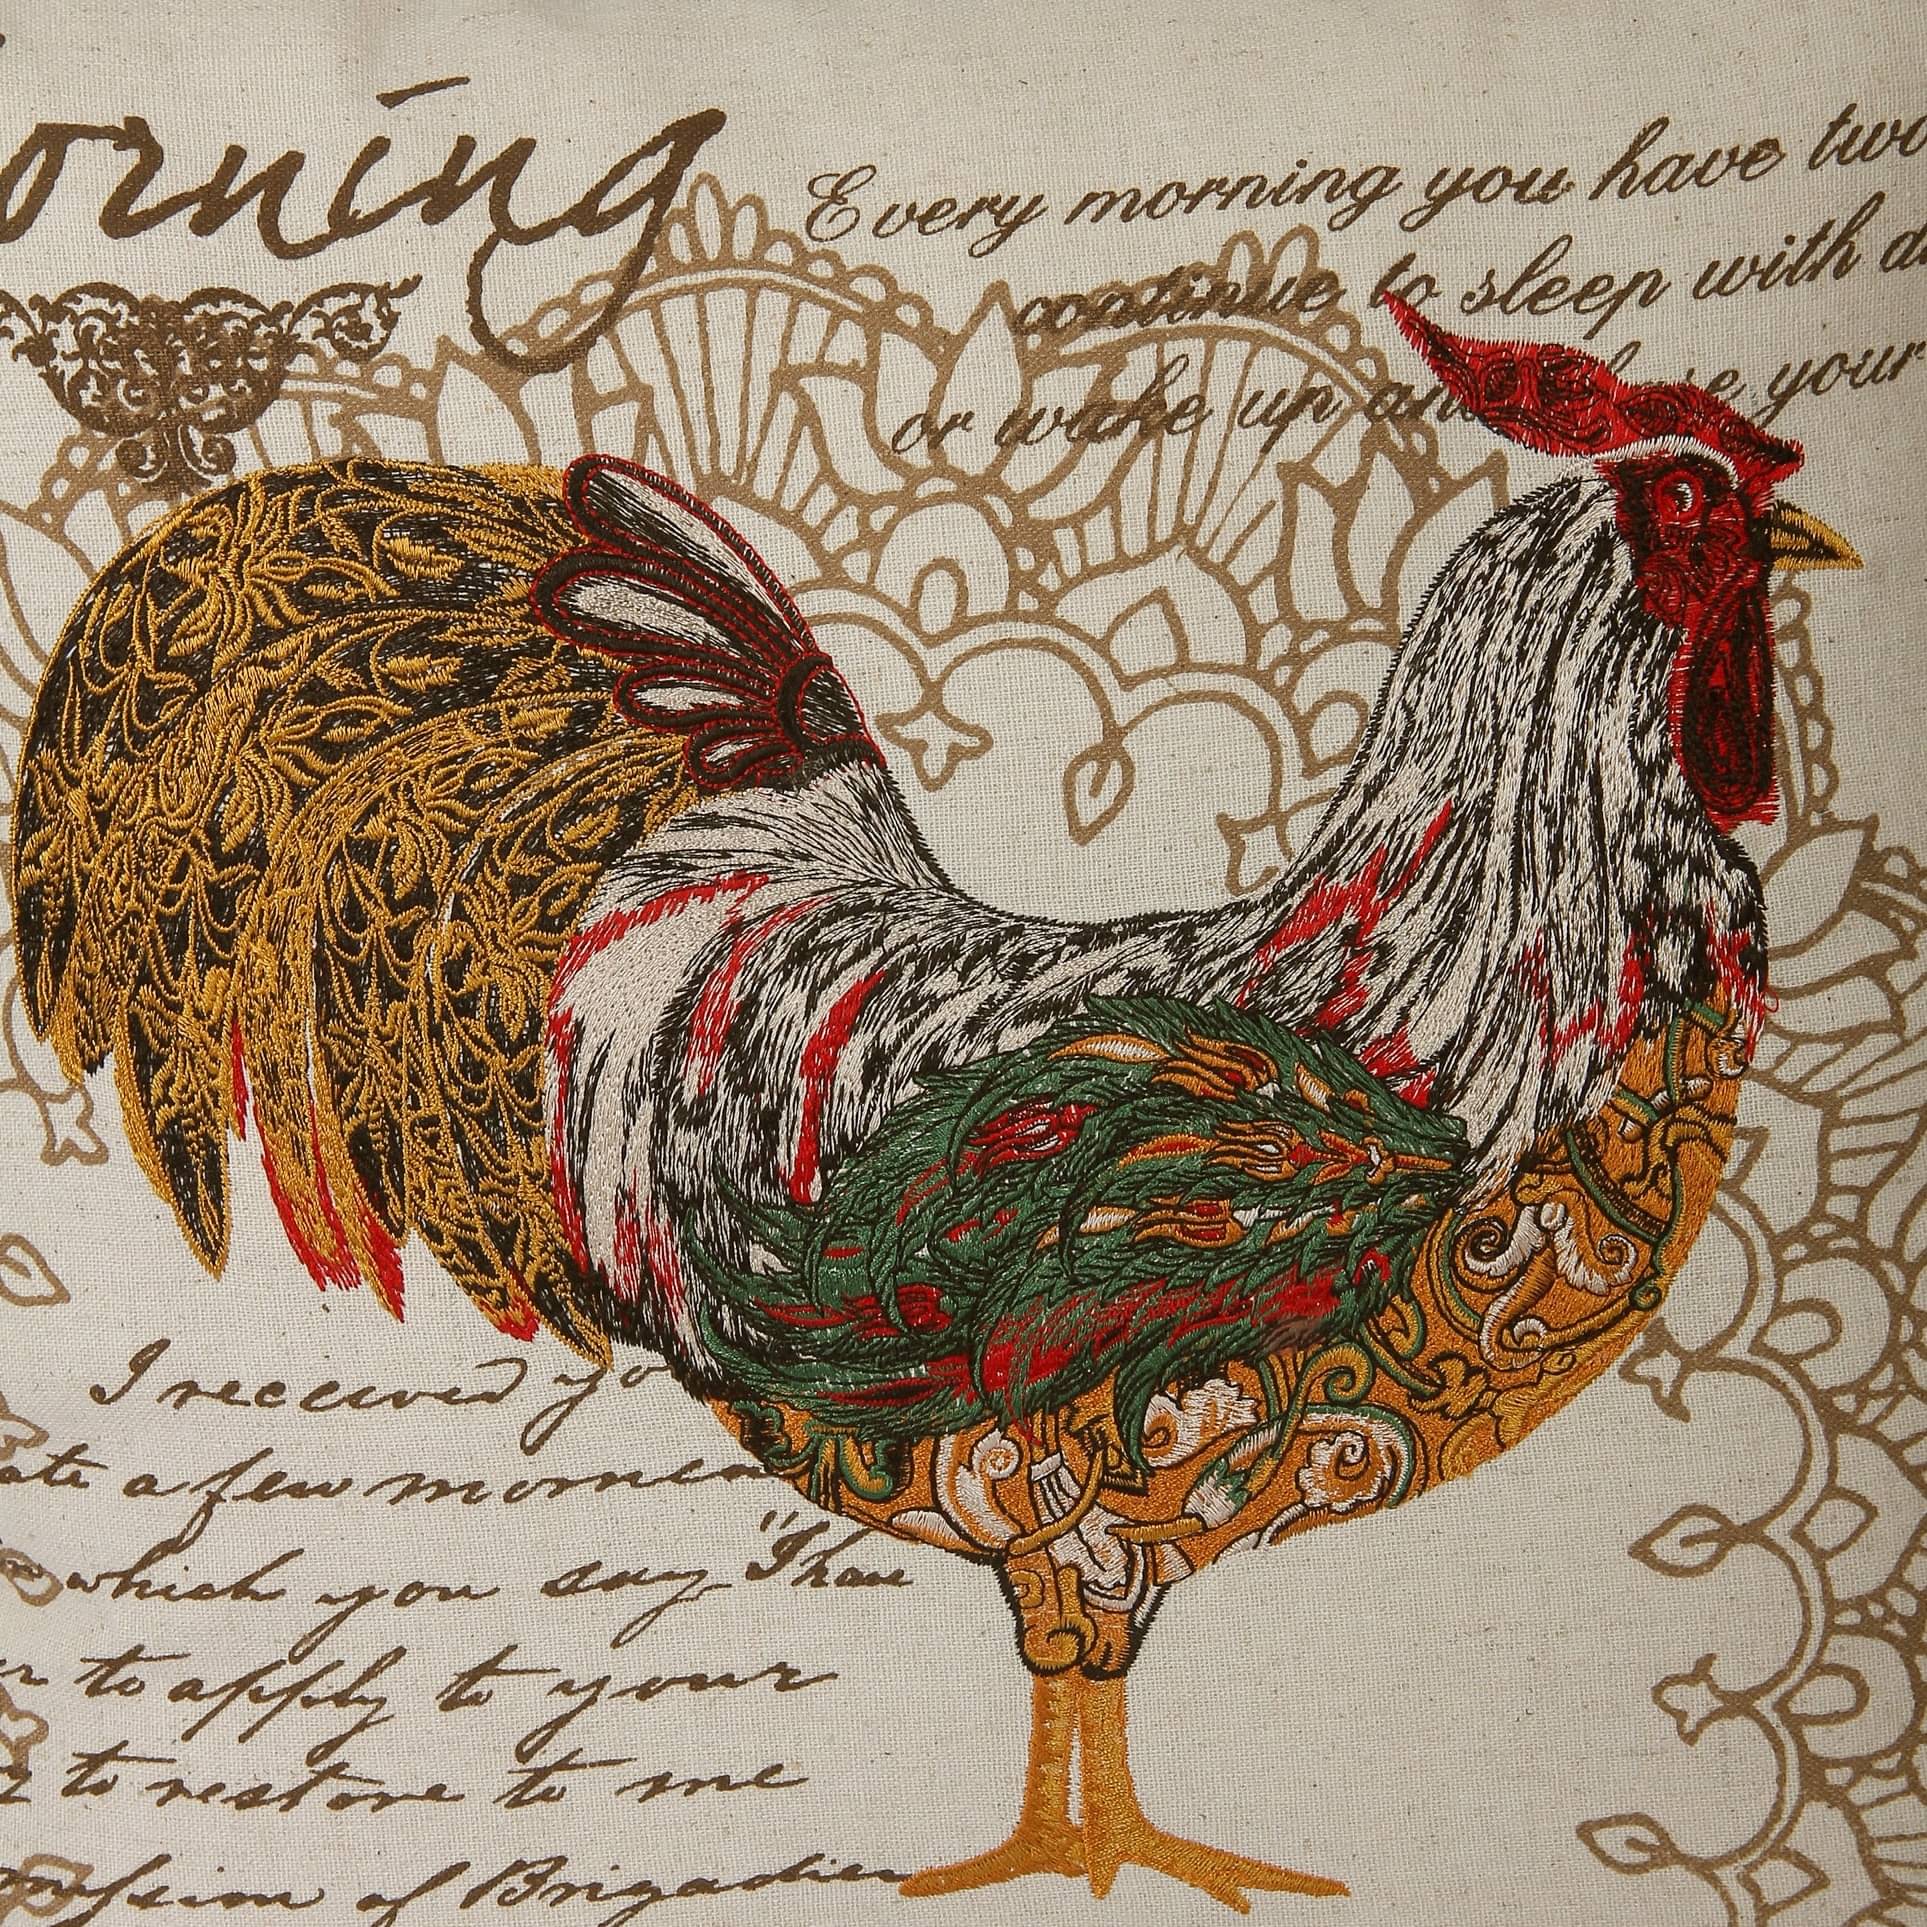 orning
Every morning you have two
continue to sleep with d
or wake up and your
I received yo
ate a few momen
which you say "I have
to apply to your
to restore to me
of Brigadier